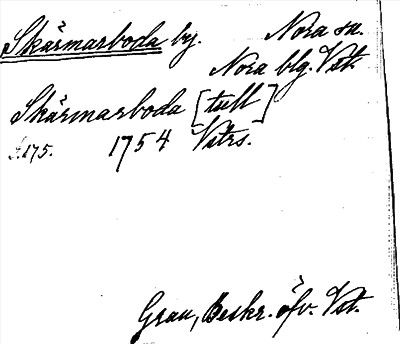 Skärmarboda by. Nora sn.
Nora blg. Vst.
Skärmarboda [tull]
s. 175. 1754 Vstrs.
Grau, Beskr. öfv. Vst.